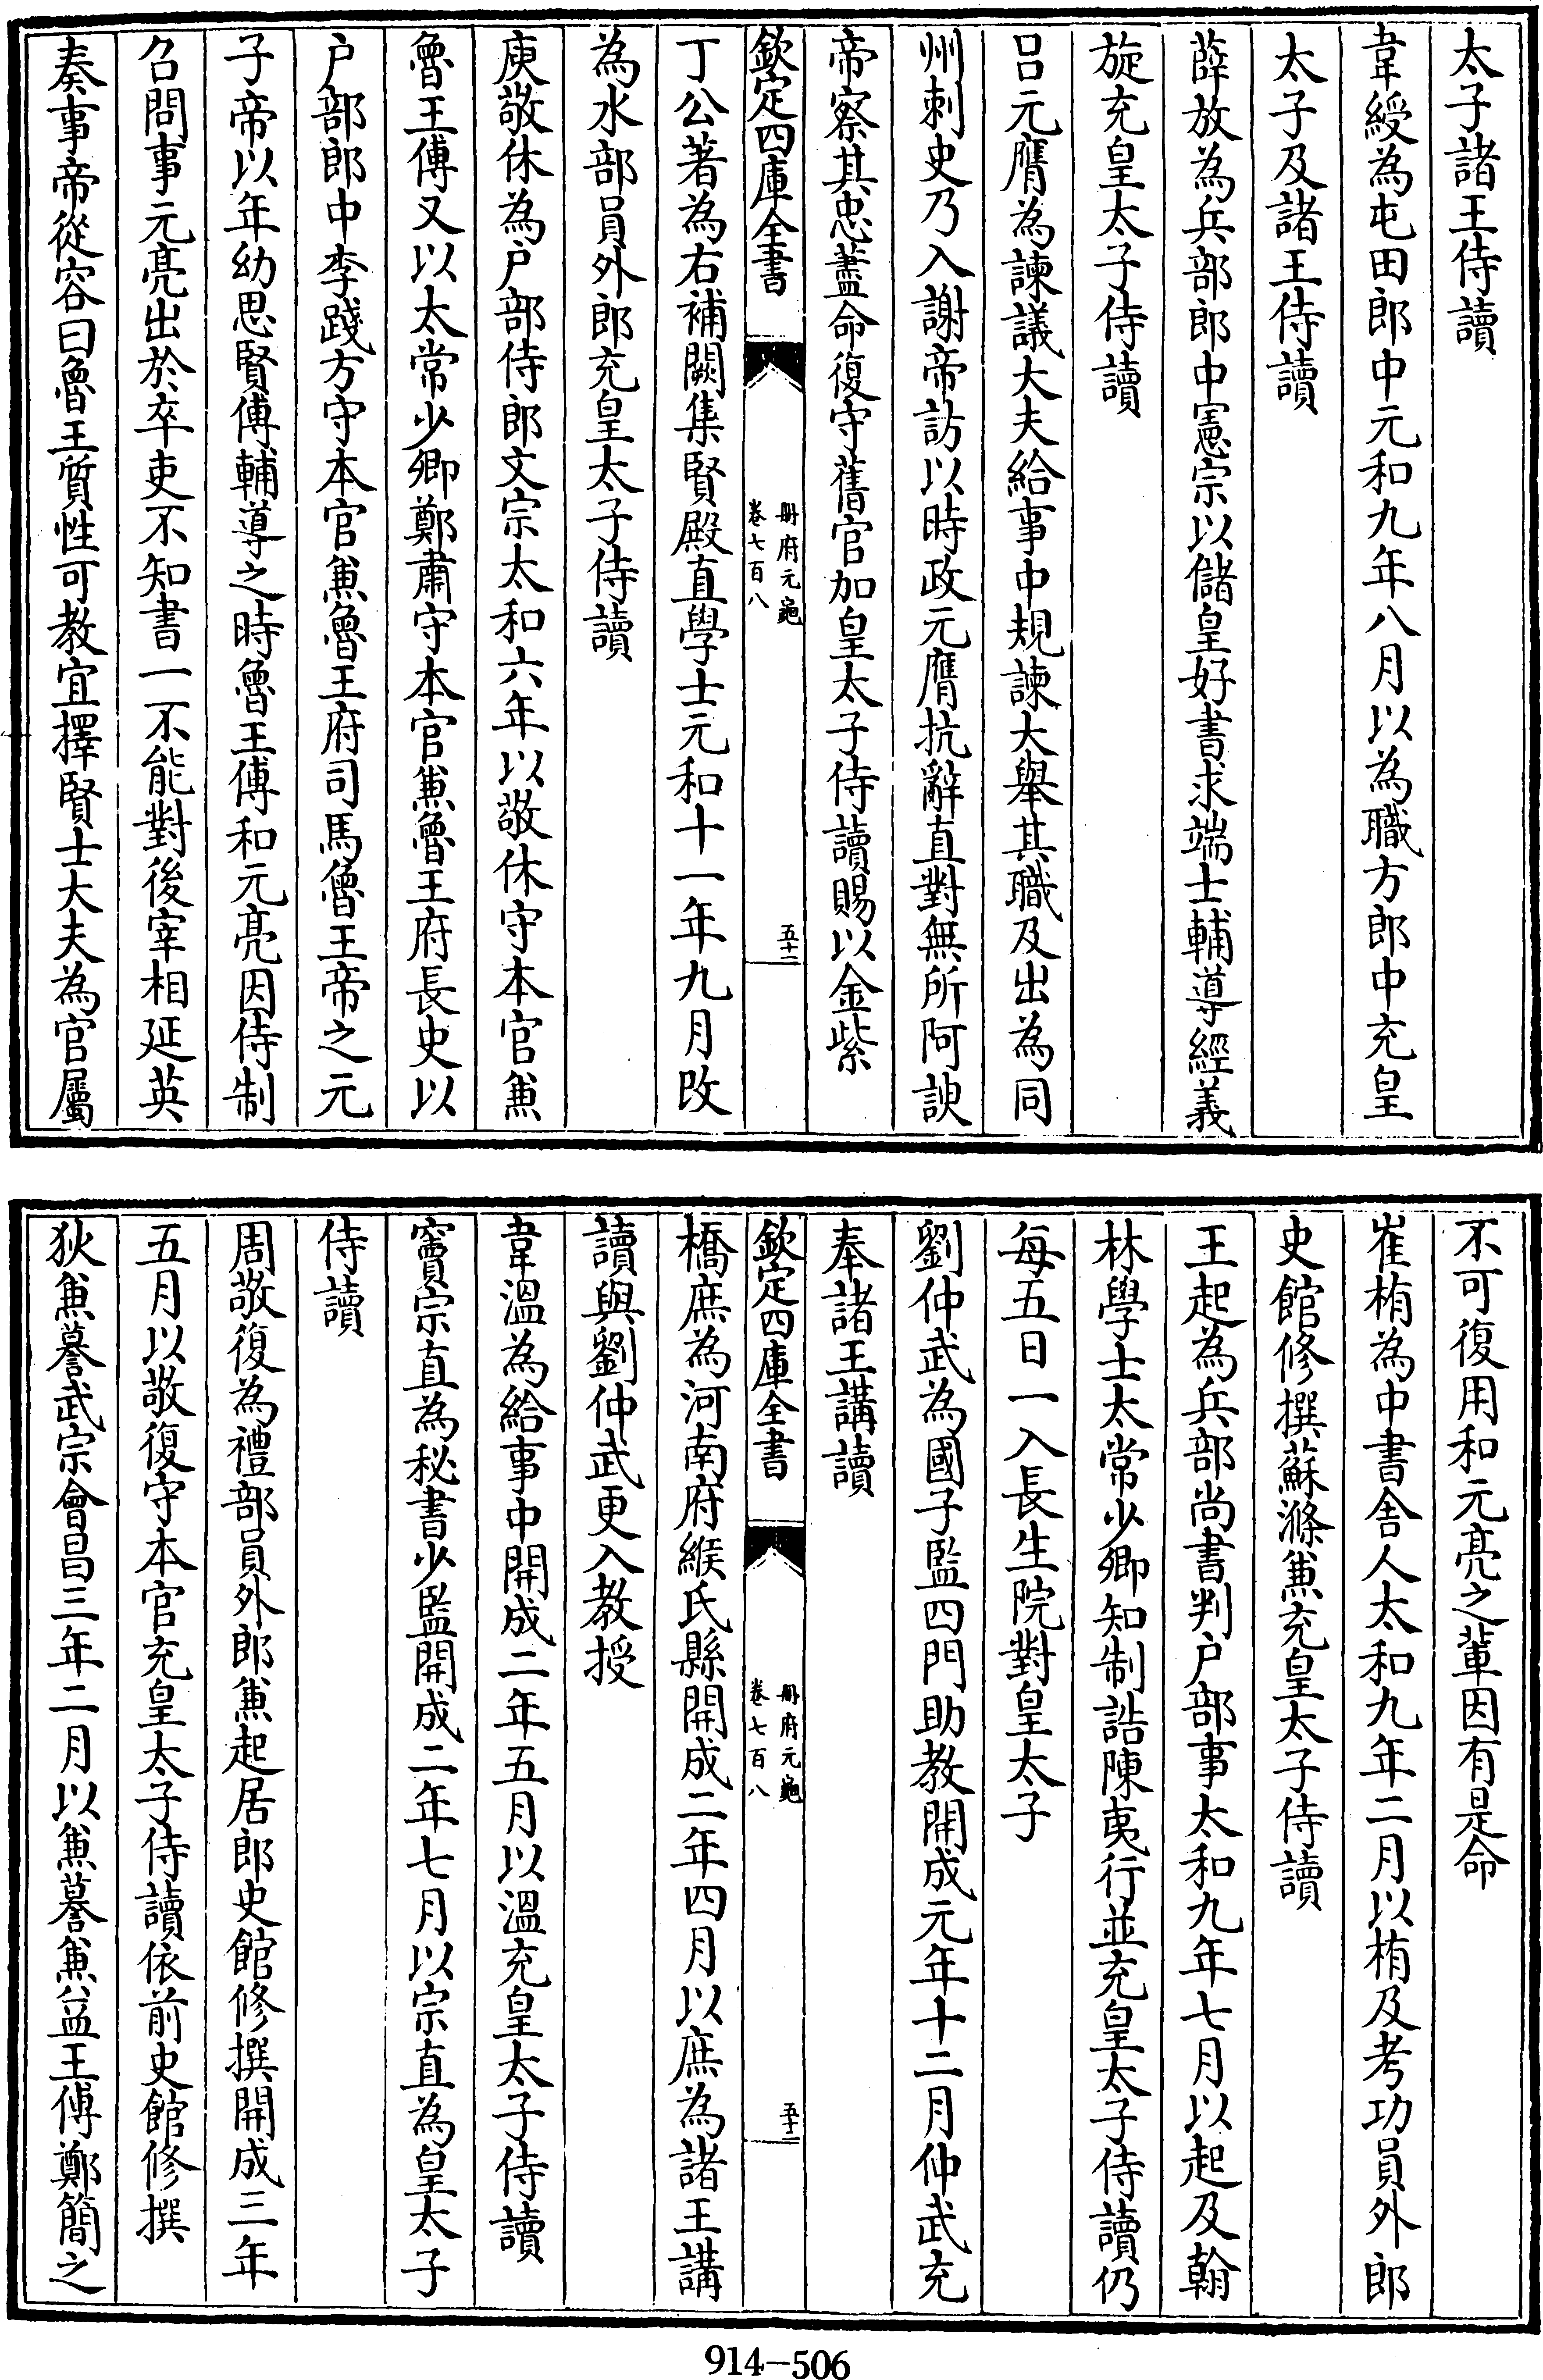 太子諸王侍讀
韋綬為屯田郎中元和九年八月以為職方郎中充皇
太子及諸王侍讀
薛放為兵部郎中憲宗以儲皇好書求端士輔導經義
旋充皇太子侍讀
吕元膺為諫議大夫給事中規諫大舉其職及出為同
州刺史乃入謝帝訪以時政元膺抗辭直對無所阿諛
帝察其忠藎命復守舊官加皇太子侍讀賜以金紫
欽定四庫全書
册府元龜
卷七百八
五十一
丁公著為右補闕集賢殿直學士元和十一年九月改
為水部員外郎充皇太子侍讀
庾敬休為户部侍郎文宗太和六年以敬休守本官兼
魯王傅又以太常少卿鄭肅守本官兼魯王府長史以
户部郎中李踐方守本官兼魯王府司馬魯王帝之元
子帝以年幼思賢傅輔導之時魯王傅和元亮因侍制
召問事元亮出於卒吏不知書一不能對後宰相延英
奏事帝從容曰魯王質性可教宜擇賢士大夫為官屬
不可復用和元亮之輩因有是命
崔栯為中書舍人太和九年二月以栯及考功員外郎
史館修撰蘇滌兼充皇太子侍讀
王起為兵部尚書判户部事太和九年七月以起及翰
林學士太常少卿知制誥陳夷行並充皇太子侍讀仍
每五日一入長生院對皇太子
劉仲武為國子監四門助教開成元年十二月仲武充
奉諸王講讀
欽定四庫全書
册府元龜
卷七百八
五十二
橋庶為河南府緱氏縣開成二年四月以庶為諸王講
讀與劉仲武更入教授
韋溫為給事中開成二年五月以溫充皇太子侍讀
竇宗直為秘書少監開成二年七月以宗直為皇太子
侍讀
周敬復為禮部員外郎兼起居郎史館修撰開成三年
五月以敬復守本官充皇太子侍讀依前史館修撰
狄兼謩武宗會昌三年二月以兼謩兼益王傅鄭簡之
914-506